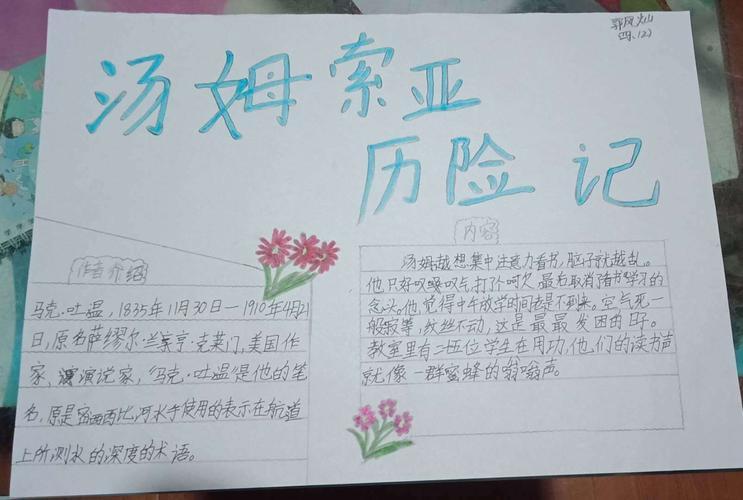 郭风灿
四、(2)
汤姆索亚
历险记
作者介绍
马克·吐温，1835年11月30日—1910年4月21
日，原名萨缪尔·兰亨·克莱门，美国作
家、演说家，"马克·吐温"是他的笔
名，原是密西西比河水手使用的表示在航道
上所测水的深度的术语。
内容
汤姆越想集中注意力看书，脑子就越乱。
他只好叹叹气打个呵欠，最后取消了看书学习的
念头。他觉得中午放学时间老是不到来。空气死一
般寂等，纹丝不动，这是最最发困的日子。
教室里有二五位学生在用功，他们的读书声
就像一群蜜蜂的嗡嗡声。